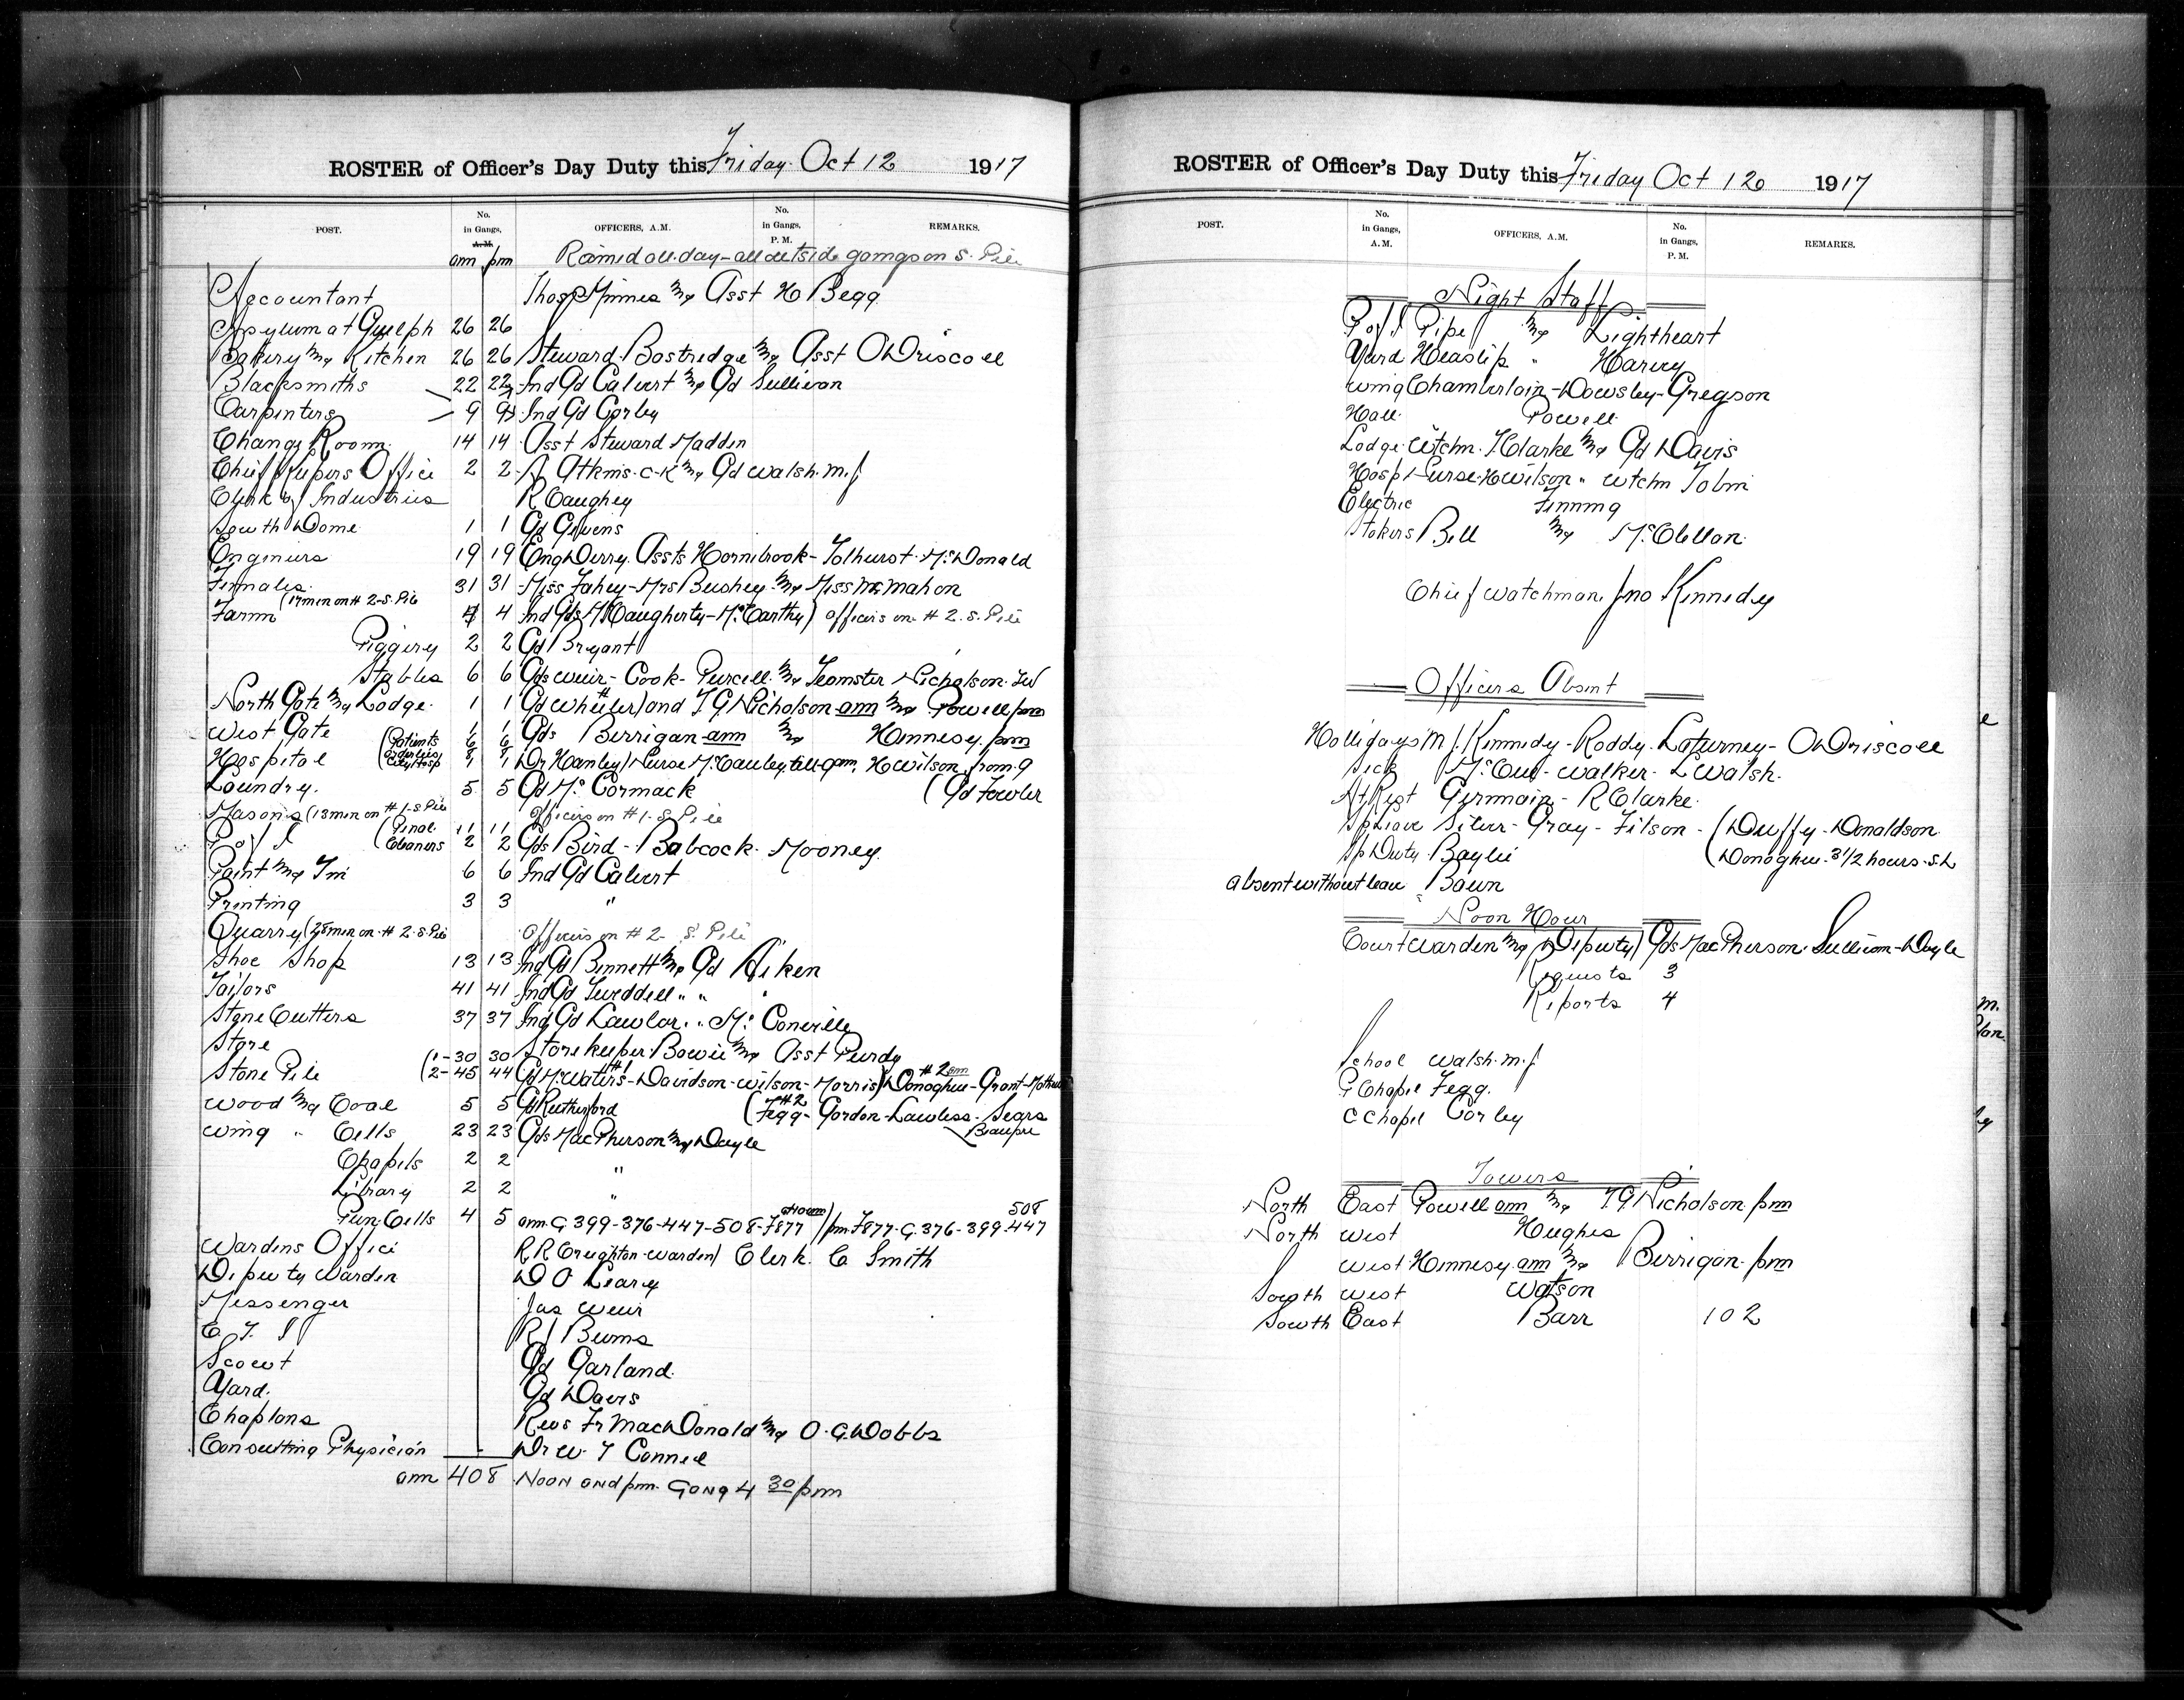 ROSTER of Officer's Day Duty this Friday Oct 12 1917
POST. No. in Gangs, A.M. OFFICERS, A.M. No. in Gangs, P.M. REMARKS.
am pm Rained all day - all outside gangs on S. Pile
Accountant Thos P Minnes & Asst H Begg
Asylum at Guelph 26 26
Bakery & Kitchen 26 26 Steward Bostridge & Asst O Driscoll
Blacksmiths 22 22 Ind Gd Calvert & Gd Sullivan
Carpenters 9 9 Ind Gd Corley
Change Room 14 14 Asst Steward Madden
Chief Kepers Office 2 2 A Atkins. C-K & Gd Walsh. m.j
Clerk of Industries R Caughey
South Dome 1 1 Gd Givens
Engineers 19 19 Eng Derry. Assts Hornibrook - Tolhurst. McDonald
Females 31 31 Miss Fahey - Mrs Bushey & Miss McMahon
Farm (17 men on # 2-S. Pile 4 4 Ind Gds M Caugherty - McCarthy) officers on # 2. S. Pile
Piggery 2 2 Gd Bryant
Stables 6 6 Gds Weir - Cook - Purcell & Teamster Nicholson. J.W
North Gate & Lodge 1 1 Gd Wheeler) and T G Nicholson am & Powell pm
West Gate 1 1 Gds Berrigan am & Hennesy. pm
Hospital (Patients 6 6
Orderlies
City Hosp 1 1 Dr Hanley) Nurse McCauley till 9 am, H Wilson from 9
Laundry. 5 5 Gd McCormack (Gd Fowler
Masons (13 men on # 1-S Pile officers on # 1- S Pile
P of I (Penal 11 11
Cleaners 2 2 Gds Bird - Babcock - Mooney
Paint & Tin 6 6 Ind Gd Calvert
Printing 3 3 "
Quarry (28 men on # 2. S. Pile officers on # 2- S. Pile
Shoe Shop 13 13 Ind Gd Bennett & Gd Aiken
Tailors 41 41 Ind Gd Tweddell " " "
Stone Cutters 37 37 Ind Gd Lawlor. " Mc Conville
Store Storekeeper Bowie & Asst Purdy
Stone Pile (1- 30 30
2- 45 44 Gd McWaters #1 - Davidson - Wilson - Morris) #2 am Donoghue - Grant -
Wood & Coal 5 5 Gd Rutherford (#2 Fegg - Gordon - Lawless - Sears
Beaupre
Wing " Cells 23 23 Gds MacPherson & Doyle
Chapels 2 2 "
Library 2 2 "
Pun Cells 4 5 am G 399-376-447-508-F877 / pm F877-G. 376-399-447 508
Wardens Office R R Creighton - Warden) Clerk C Smith
Deputy Warden D O Leary
Messenger Jas Weir
C. T. I R J Burns
Scout Gd Garland
Yard. Gd Davis
Chaplans Revs Fr MacDonald & O. G. Dobbs
Consulting Physician Dr W. T Connell
am 408 Noon and pm. Gong 4 30 pm
ROSTER of Officer's Day Duty this Friday Oct 12 1917
POST. No. in Gangs, A.M. OFFICERS, A.M. No. in Gangs, P.M. REMARKS.
Night Staff
P of I Pipe & Lightheart
Yard Heaslip " Harvey
Wing Chamberlain - Dowsley - Gregson
Hall Powell
Lodge Wtchm. T. Clarke & Gd Davis
Hospl Nurse H Wilson " Wtchm Tobin
Electric Tinning
Stokers Bell & McClellan
Chief Watchman Jno Kennedy
Officers Absent
Hollidays M J. Kennedy - Roddy - Laturney - O Driscoll
Sick Walker - L Walsh.
At Rest Germain - R Clarke
Sp Leave Silver - Gray - Filson - (Duffy - Donaldson
Sp Duty Baylie (Donoghue - 3 1/2 hours - S.L
absent without leave Bawn
Noon Hour
Court Warden & Deputy) Gds MacPherson. Sullivan - Doyle
Requests 3
Reports 4
School Walsh. m. j
P Chapel Fegg.
C Chapel Corley
Towers
North East Powell am & T G Nicholson pm
North West Hughes
West Hennesy am & Berrigan pm
South West Watson
South East Barr 102